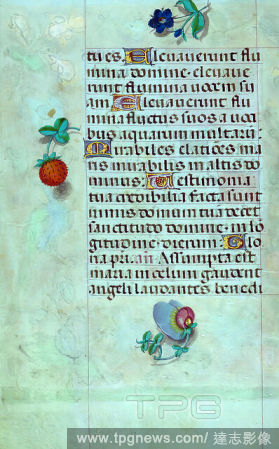 tu es. Elevaverunt flu
mina domine. elevave
runt flumina vocem su
am. Elevaverunt flu
mina fluctus suos a vo
cibus aquarum multarum:
Mirabiles elationes ma
ris mirabilis in altis do
minus. Testimonia
tua credibilia facta sunt
nimis domum tuam decet
sanctitudo domine. in lo
gitudine dierum. Glo
ria pri. an Assumpta est
maria in celum gaudent
angeli laudantes benedi
TPG
www.tpgnews.com/達志影像